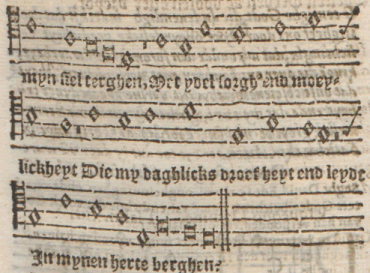 myn siel terghen, Met ydel sorgh' end moey-
lickheyt Die my daghlicks droefheyt end leydt
In mynen herte berghen?